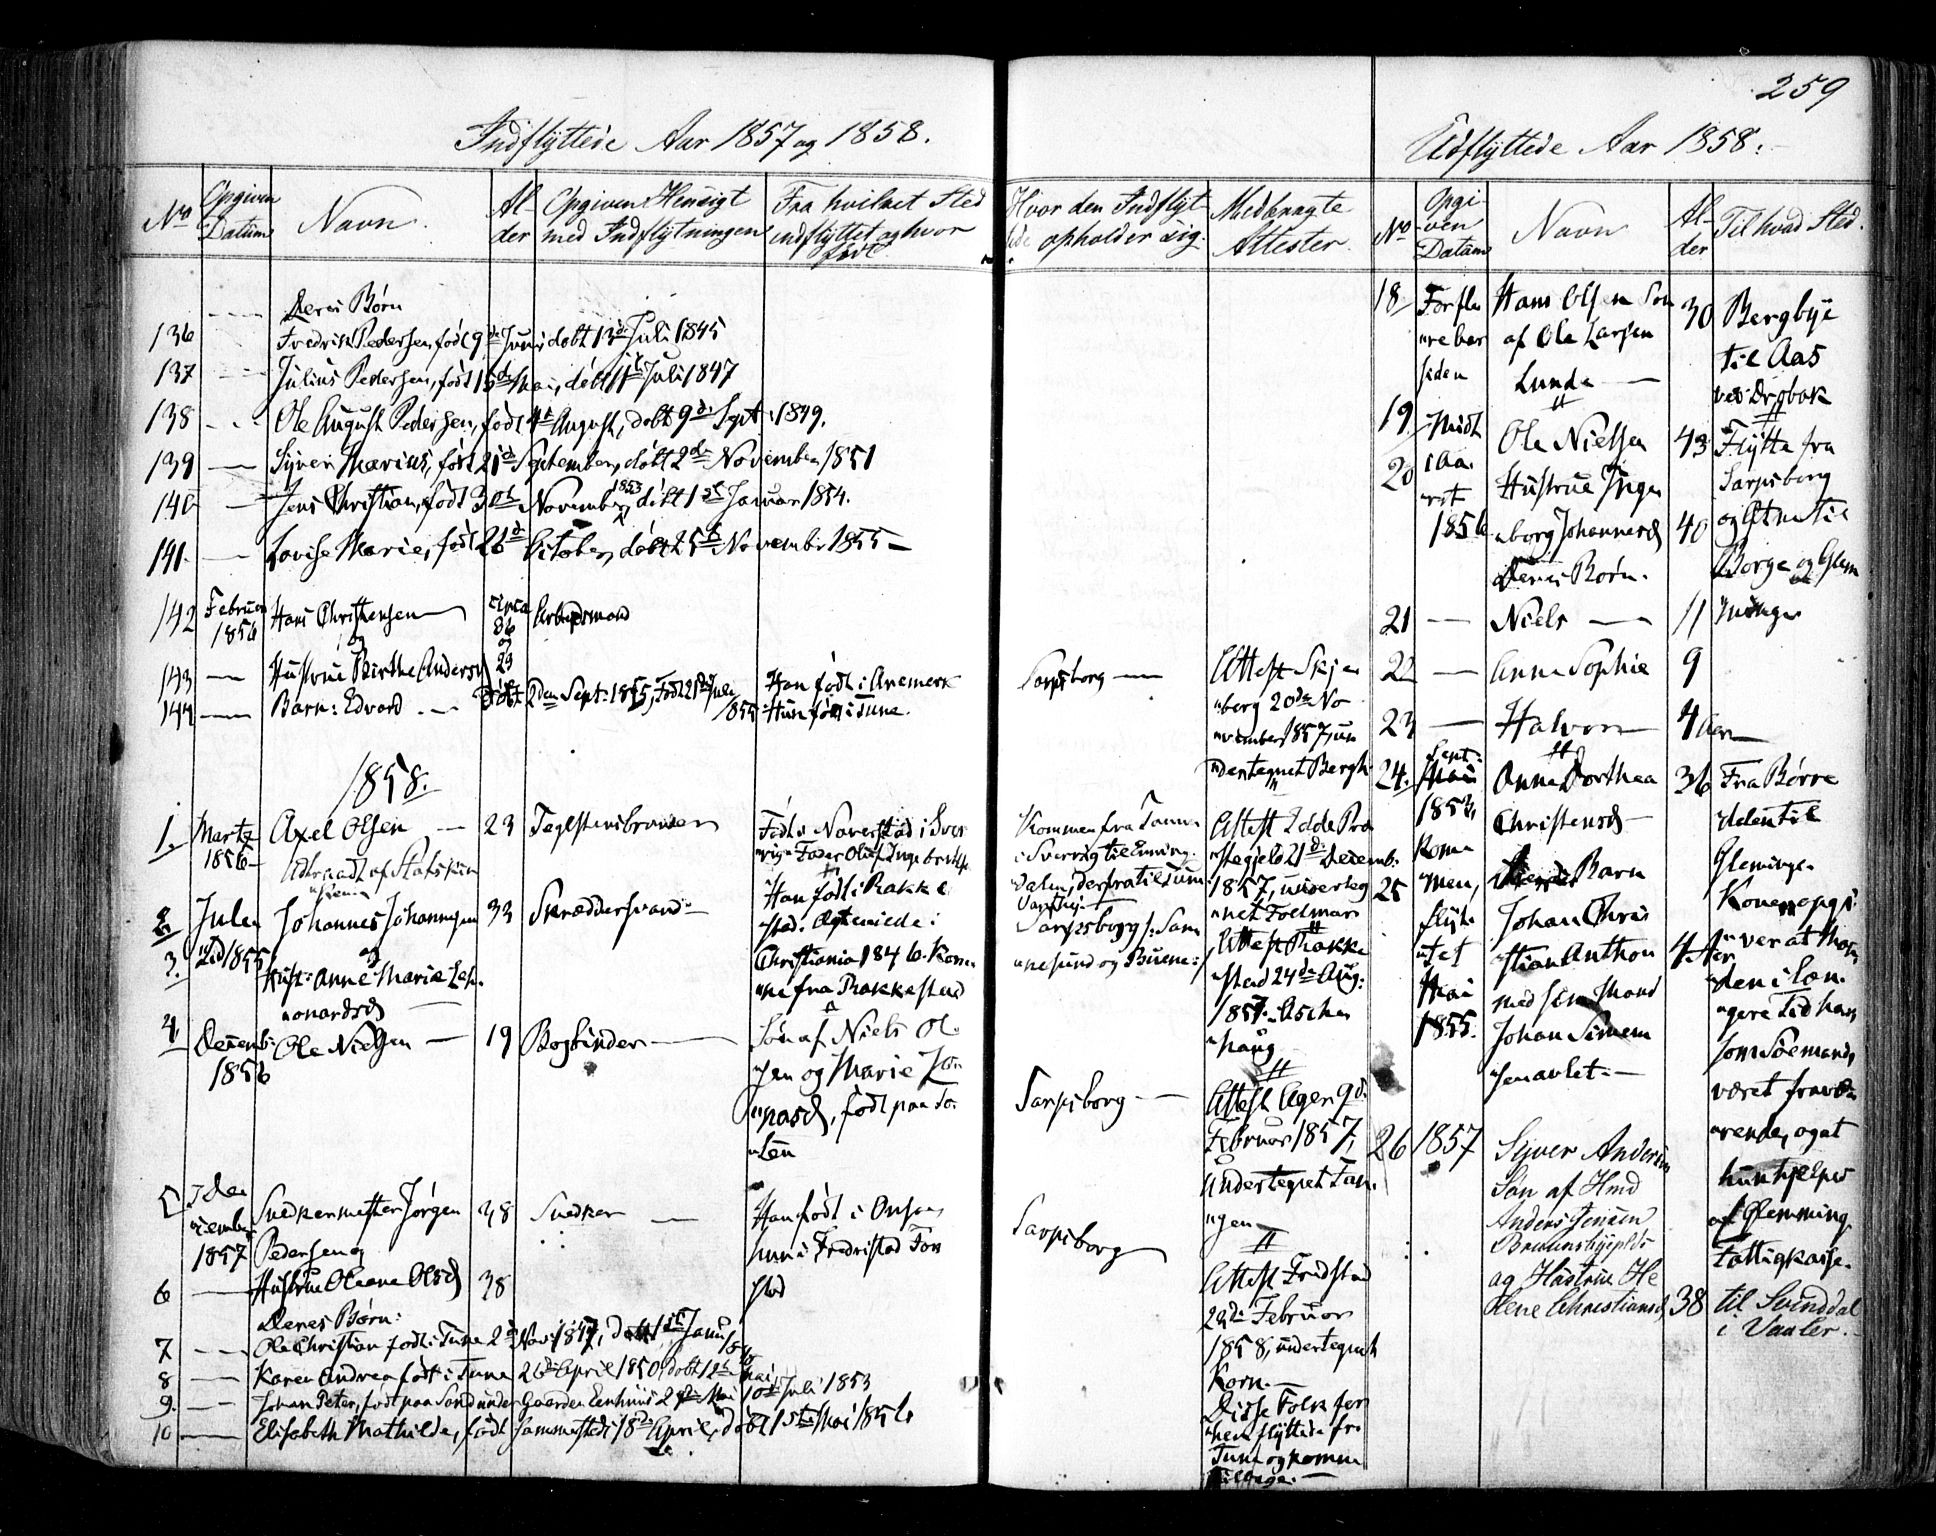 259
Indflyttede Aar 1857 og 1858.
No
Opgiven Datum
Navn.
Alder
Opgiven Hensigt med Indflytningen
Fra hvilket Sted indflyttet og hvor født
Hvor den Indflyttede opholder sig.
Medbragte Attester.
Deres Børn
136 — Fredrik Pedersen, født 9de Juni døbt 13de Juli 1845
137 — Julius Pedersen, født 15de Mai, døbt 11te Juli 1847
138 — Ole August Pedersen, født 4de August, døbt 9de Sept: 1849.
139 — Syver Marius, født 21de September, døbt 2den November 1851
140 — Jens Christian, født 30te November 1853 døbt 1ste Januar 1854.
141. — Lovise Marie, født 26de October, døbt 25de November 1855 —
142 Februar 1856 Hans Christensen
og
circa 36 og
Arbeidsmand
143 — Hustrue Birthe Andersd 29
144 — Barn: Edvard — Døbt 2den Sept: 1855, Født 21de Juli 1855
Han født i Aremark
Hun født i Tune.
Sarpsborg —
Attest Skje
"berg 20de No
"vember 1857, un
"dertegnet Bergh
1858.
1. Martz 1856 — Axel Olsen — 23 Teglstensbrænder
Født i Naverstad i Sver
"rig. Fader Oluf Ingebrigts
Kommen fra Tanum
i Sverrig til Enning
dalen, derfra til Tune
Attest Idde Præ
"stegjeld 21de Decemb:
1857, underteg
"net Foelmar
2. Julen Johannes Johannesen 33 Skræddersvend —
og
3. 1855 Hust: Anne Marie Leh
"onardsd —
Han født i Rakke
"stad.
Christiania 1846. Kom
"ne fra Rakkestad
Sarpsborg /: San
"nesund og Buene :/
Attest Rakke
"stad 24de Aug:
1857. Asche
"houg
4. Decemb: 1856 Ole Nielsen — 19 Bogbinder —
Søn af Niels Ol
"sen og Marie
"nasd, født paa To
"ten
Sarpsborg —
Attest Ager 9de
Februar 1857,
undertegnet Tan
"gen
5 I December 1857 Snedkermester Jørgen 38 Snedker —
Pedersen og
6 — Hustrue Oleane Olsd 38
Han født i Onsøe,
hun i Fredristad For
stad
Sarpsborg
Attest Fredstad
22de Februar
1858, undertegnet
Korn. —
Disse Folk før
"hen flyttede fra
Tune og komme
tilbage. —
Deres Børn:
7 — Ole Christian født i Tune 2den Nov: 1847, Døbt 1ste Janu
8 — Karen Andrea født i Tune 26de April 1850, døbt 12te Mai
9. — Johan Peter, født paa Sand under Gaarden Eenhuus 2den Mai 10de Juli 1853
10 — Elisabeth Mathilde, født sammesteds 18de April, døbt 1ste Mai 1856
Udflyttede Aar 1858.
No
Opgiven Datum
Navn
Alder
Til hvad Sted.
18 Forfle
"re Aar
siden
Hans Olsen Søn
af Ole Larsen
Lunde —
30 Bergbye
til Aas
ved Drøbak
19 Midt
i Aa
"ret
1856
Ole Nielsen 43 Flytte fra
Sarpsborg
og til
Borge og Glem
"minge
20 Hustrue Inge
"borg Johannesd 40
Deres Børn.
21 — Niels — 11
22 — Anne Sophie 9
23 — Halvor — 4 Aar —
24. Sept:
1853,
Kom
men,
flyt
"tet
Mai
1855.
Anne Dorthea
Christensd —
36 Fra Børre
dalen til
Gleminge.
Konen opgi
"ver at Man
den i læn
"gere Tid har
som Søemand,
været fravæ
"rende, og at
hun hjelpes
af Glemming
Fattigkasse.
25 Barn
Johan Chris
"tian Anthon 4 Aar
med sin Mand
Johan Simen
"sen avlet. —
26 1857 Syver Andersen
Søn af Hmd
Anders Jensen
Brunsbyeplds
og Hustrue He
"lene Christiansd, 38 til Svinddal
i Vaaler. —